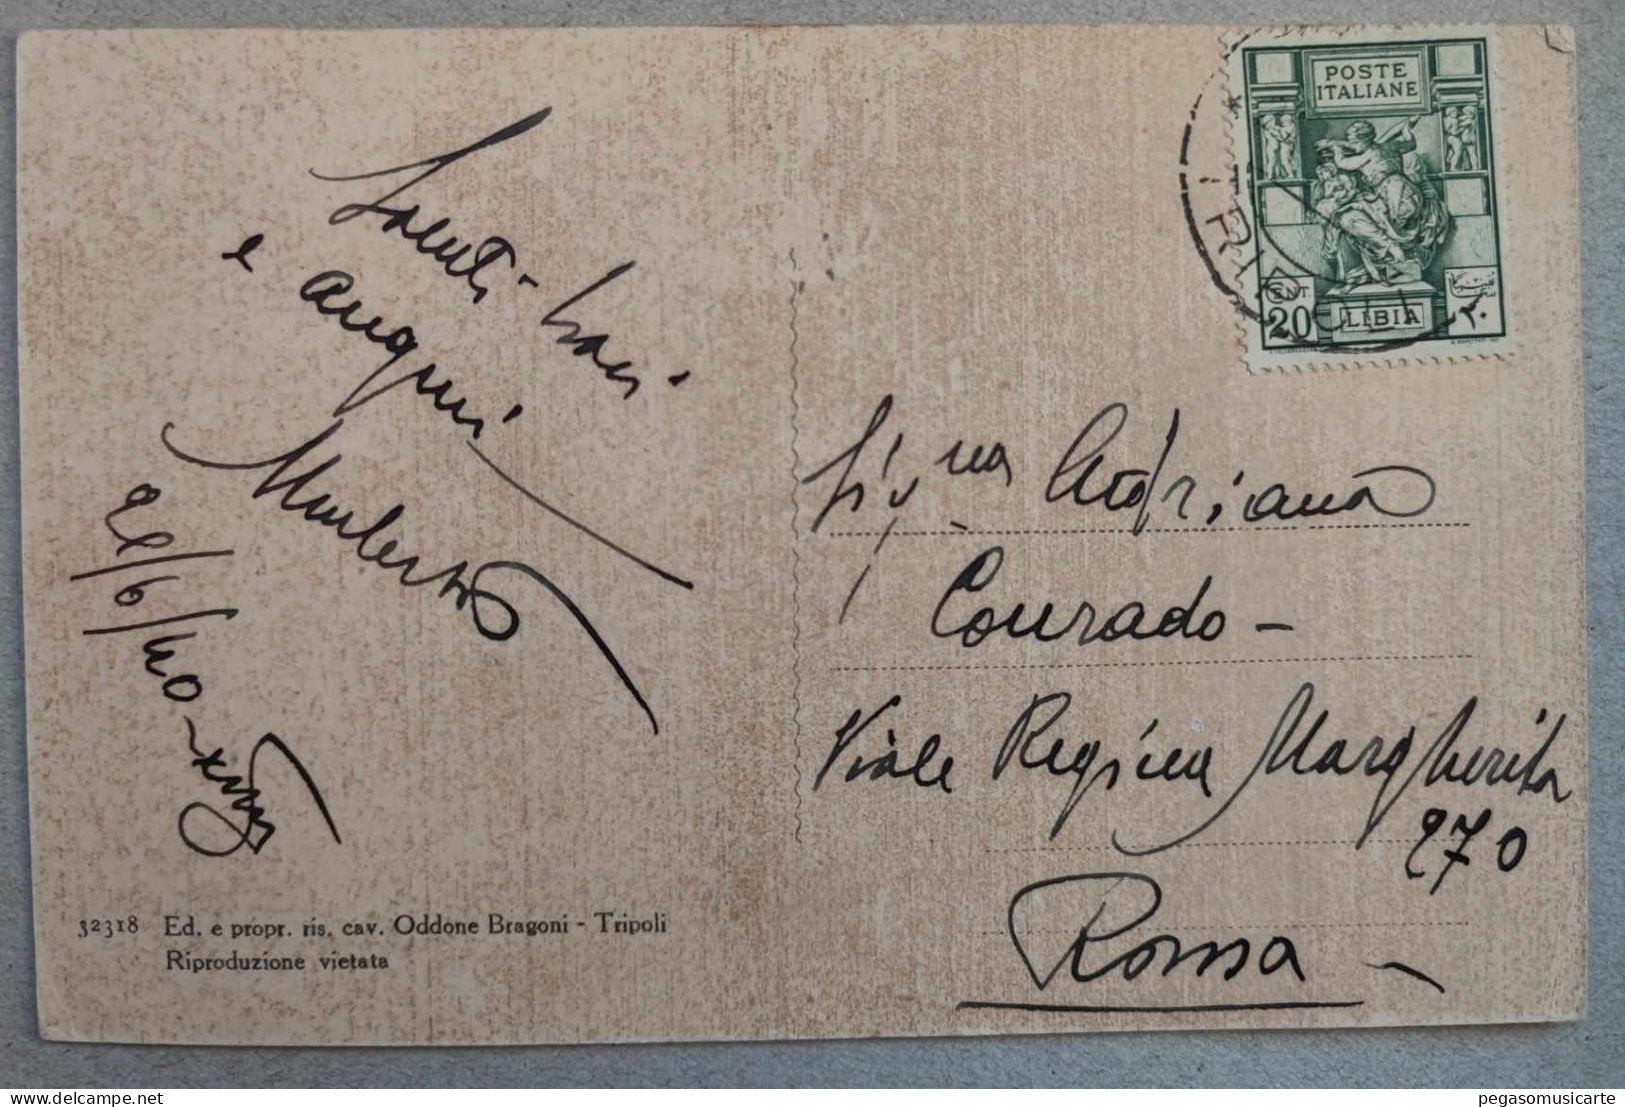 Saluti - baci -
e auguri
Umberto
28/6/40 - XVIII
32318 Ed. e propr. ris. cav. Oddone Bragoni - Tripoli
Riproduzione vietata
POSTE
ITALIANE
CENT.
20
LIBIA
٢٠
TRIPOLI
Sig.na Adriana
Conrado -
Viale Regina Margherita
270
Roma -
pegasomusicarte